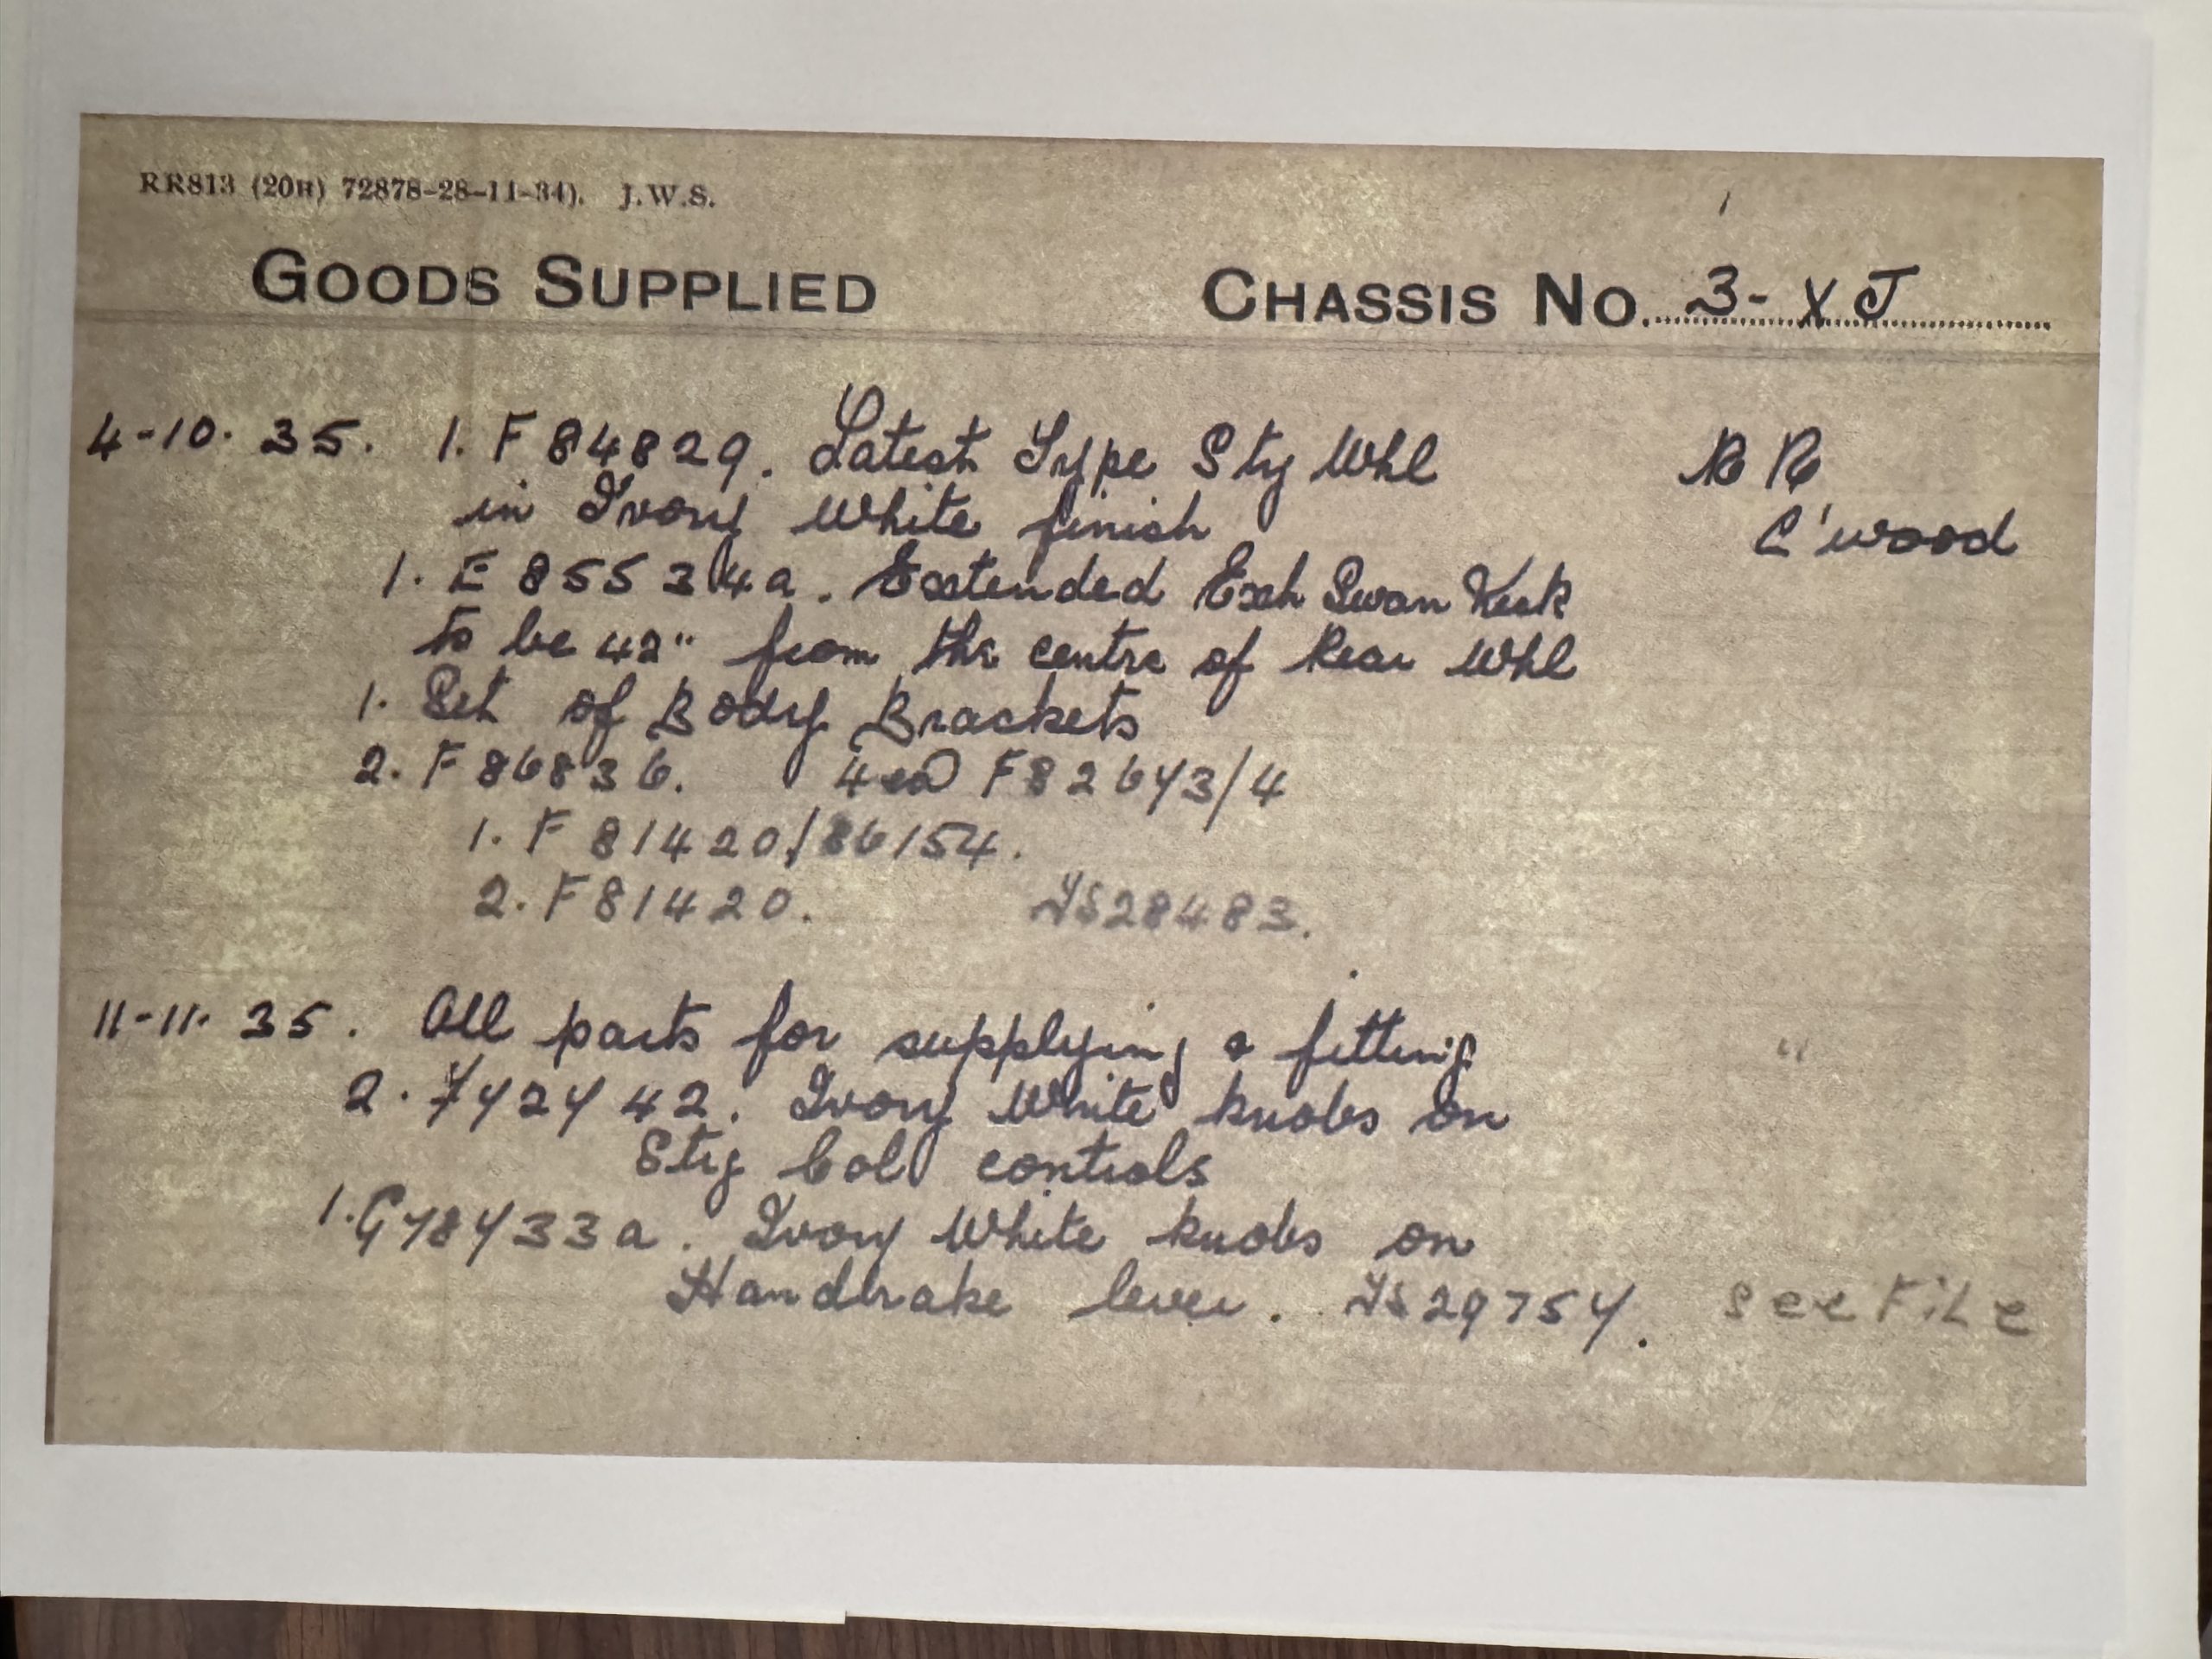 RR813 (20H) 72878-28-11-34). J.W.S.
GOODS SUPPLIED CHASSIS NO. 3-XJ
4-10. 35. 1. F 84829. Latest Type Stg Whl R R
in Ivory White finish C'wood
1. E 85534a. Extended Exh Swan Neck
to be 42" from the centre of Rear Whl
1. Set of Body Brackets
2. F 86836. 4 ea F82673/4
1. F 81420/86154.
2. F81420. 28483.
11-11. 35. All parts for supplying & fitting
2. F72742. Ivory White knobs on
Strg Col controls
1. G78733a. Ivory White knobs on
Handbrake lever. 29757. see File